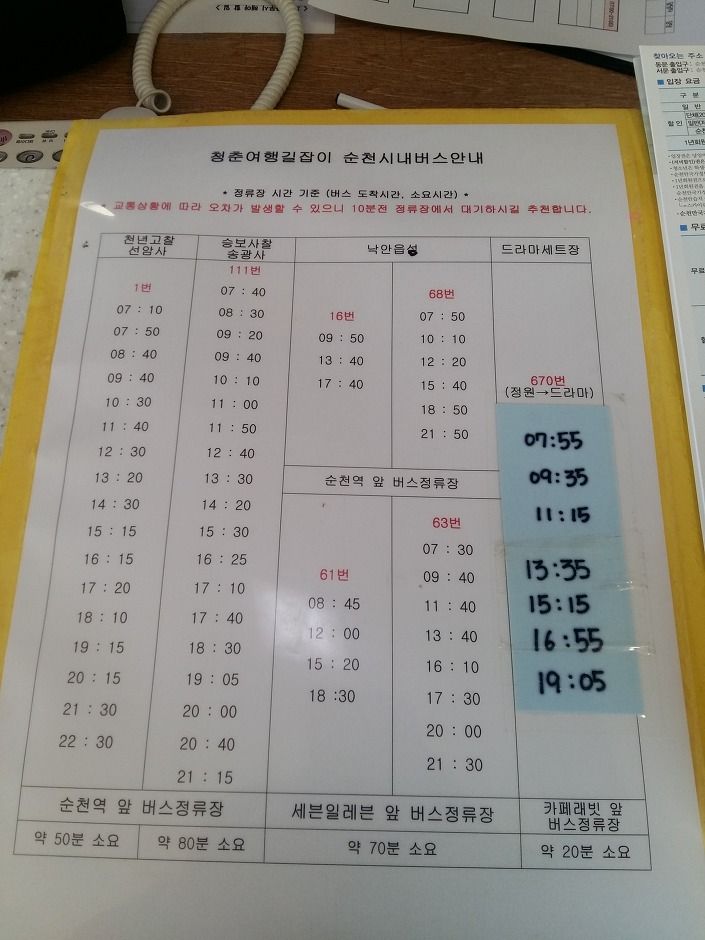 청춘여행길잡이 순천시내버스안내
* 정류장 시간 기준 (버스 도착시간, 소요시간) *
* 교통상황에 따라 오차가 발생할 수 있으니 10분전 정류장에서 대기하시길 추천합니다.
천년고찰
선암사
1번
07 : 10
07 : 50
08 : 40
09 : 40
10 : 30
11 : 40
12 : 30
13 : 20
14 : 30
15 : 15
16 : 15
17 : 20
18 : 10
19 : 15
20 : 15
21 : 30
22 : 30
승보사찰
송광사
111번
07 : 40
08 : 30
09 : 20
09 : 40
10 : 10
11 : 00
11 : 50
12 : 40
13 : 30
14 : 20
15 : 30
16 : 25
17 : 10
17 : 40
18 : 30
19 : 05
20 : 00
20 : 40
21 : 15
순천역 앞 버스정류장
약 50분 소요
약 80분 소요
낙안읍성
16번
09 : 50
13 : 40
17 : 40
68번
07 : 50
10 : 10
12 : 20
15 : 40
18 : 50
21 : 50
순천역 앞 버스정류장
61번
08 : 45
12 : 00
15 : 20
18 :30
63번
07 : 30
09 : 40
11 : 40
13 : 40
16 : 10
17 : 30
20 : 00
21 : 30
세븐일레븐 앞 버스정류장
약 70분 소요
드라마세트장
670번
(정원→드라마)
07:55
09:35
11:15
13:35
15:15
16:55
19:05
카페래빗 앞
버스정류장
약 20분 소요
찾아오는 주소
동문 출입구 :
서문 출입구 :
■ 입장 요금
구 분
일 반
할 인